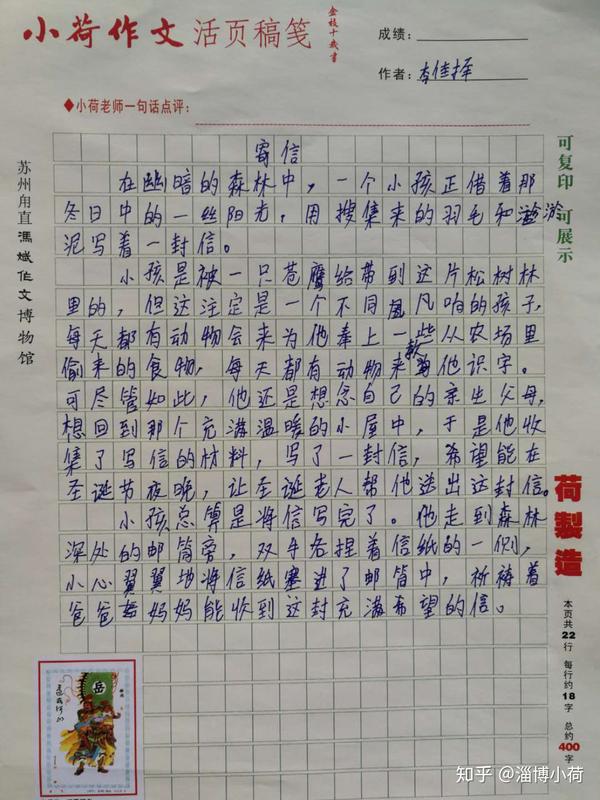 小荷作文 活页稿笺
金枝十载书
成绩：
作者：李佳择
◆小荷老师一句话点评：
寄信
在幽暗的森林中，一个小孩正借着那
冬日中的一丝阳光，用搜集来的羽毛和淤
泥写着一封信。
小孩是被一只苍鹰给带到这片松树林
里的，但这注定是一个不同凡响的孩子，
每天都有动物会来为他奉上一些从农场里
偷来的食物，每天都有动物来教他识字。
可尽管如此，他还是想念自己的亲生父母，
想回到那个充满温暖的小屋中，于是他收
集了写信的材料，写了一封信，希望能在
圣诞节夜晚，让圣诞老人帮他送出这封信。
小孩总算是将信写完了。他走到森林
深处的邮筒旁，双手各捏着信纸的一侧，
小心翼翼地将信纸塞进了邮筒中，祈祷着
爸爸妈妈能收到这封充满希望的信。
苏州甪直馮斌作文博物馆
可复印 可展示
荷製造
本页共22行 每行约18字 总约400字
岳
知乎 @淄博小荷